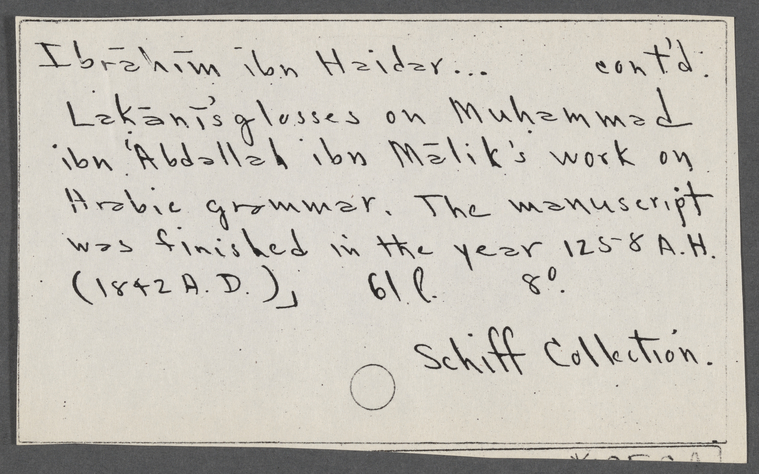 Ibrāhīm ibn Haidar... cont'd.
Lakānī's glosses on Muhammad
ibn 'Abdallah ibn Mālik's work on
Arabic grammar. The manuscript
was finished in the year 1258 A.H.
(1842 A.D.)] 61 l. 8º.
Schiff Collection.